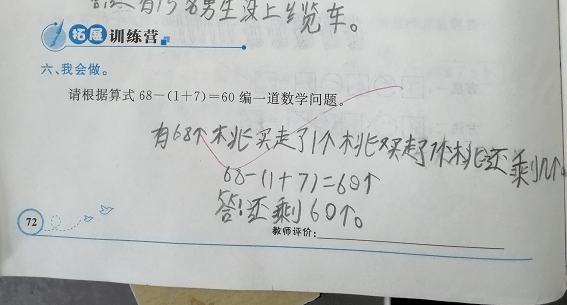 还有15名男生没上缆车。
拓展训练营
六、我会做。
请根据算式 68-(1+7)=60 编一道数学问题。
有68个桃买走了1个桃又买走了7个桃还剩几个
68-(1+7)=60个
答:还剩60个。
72
教师评价: